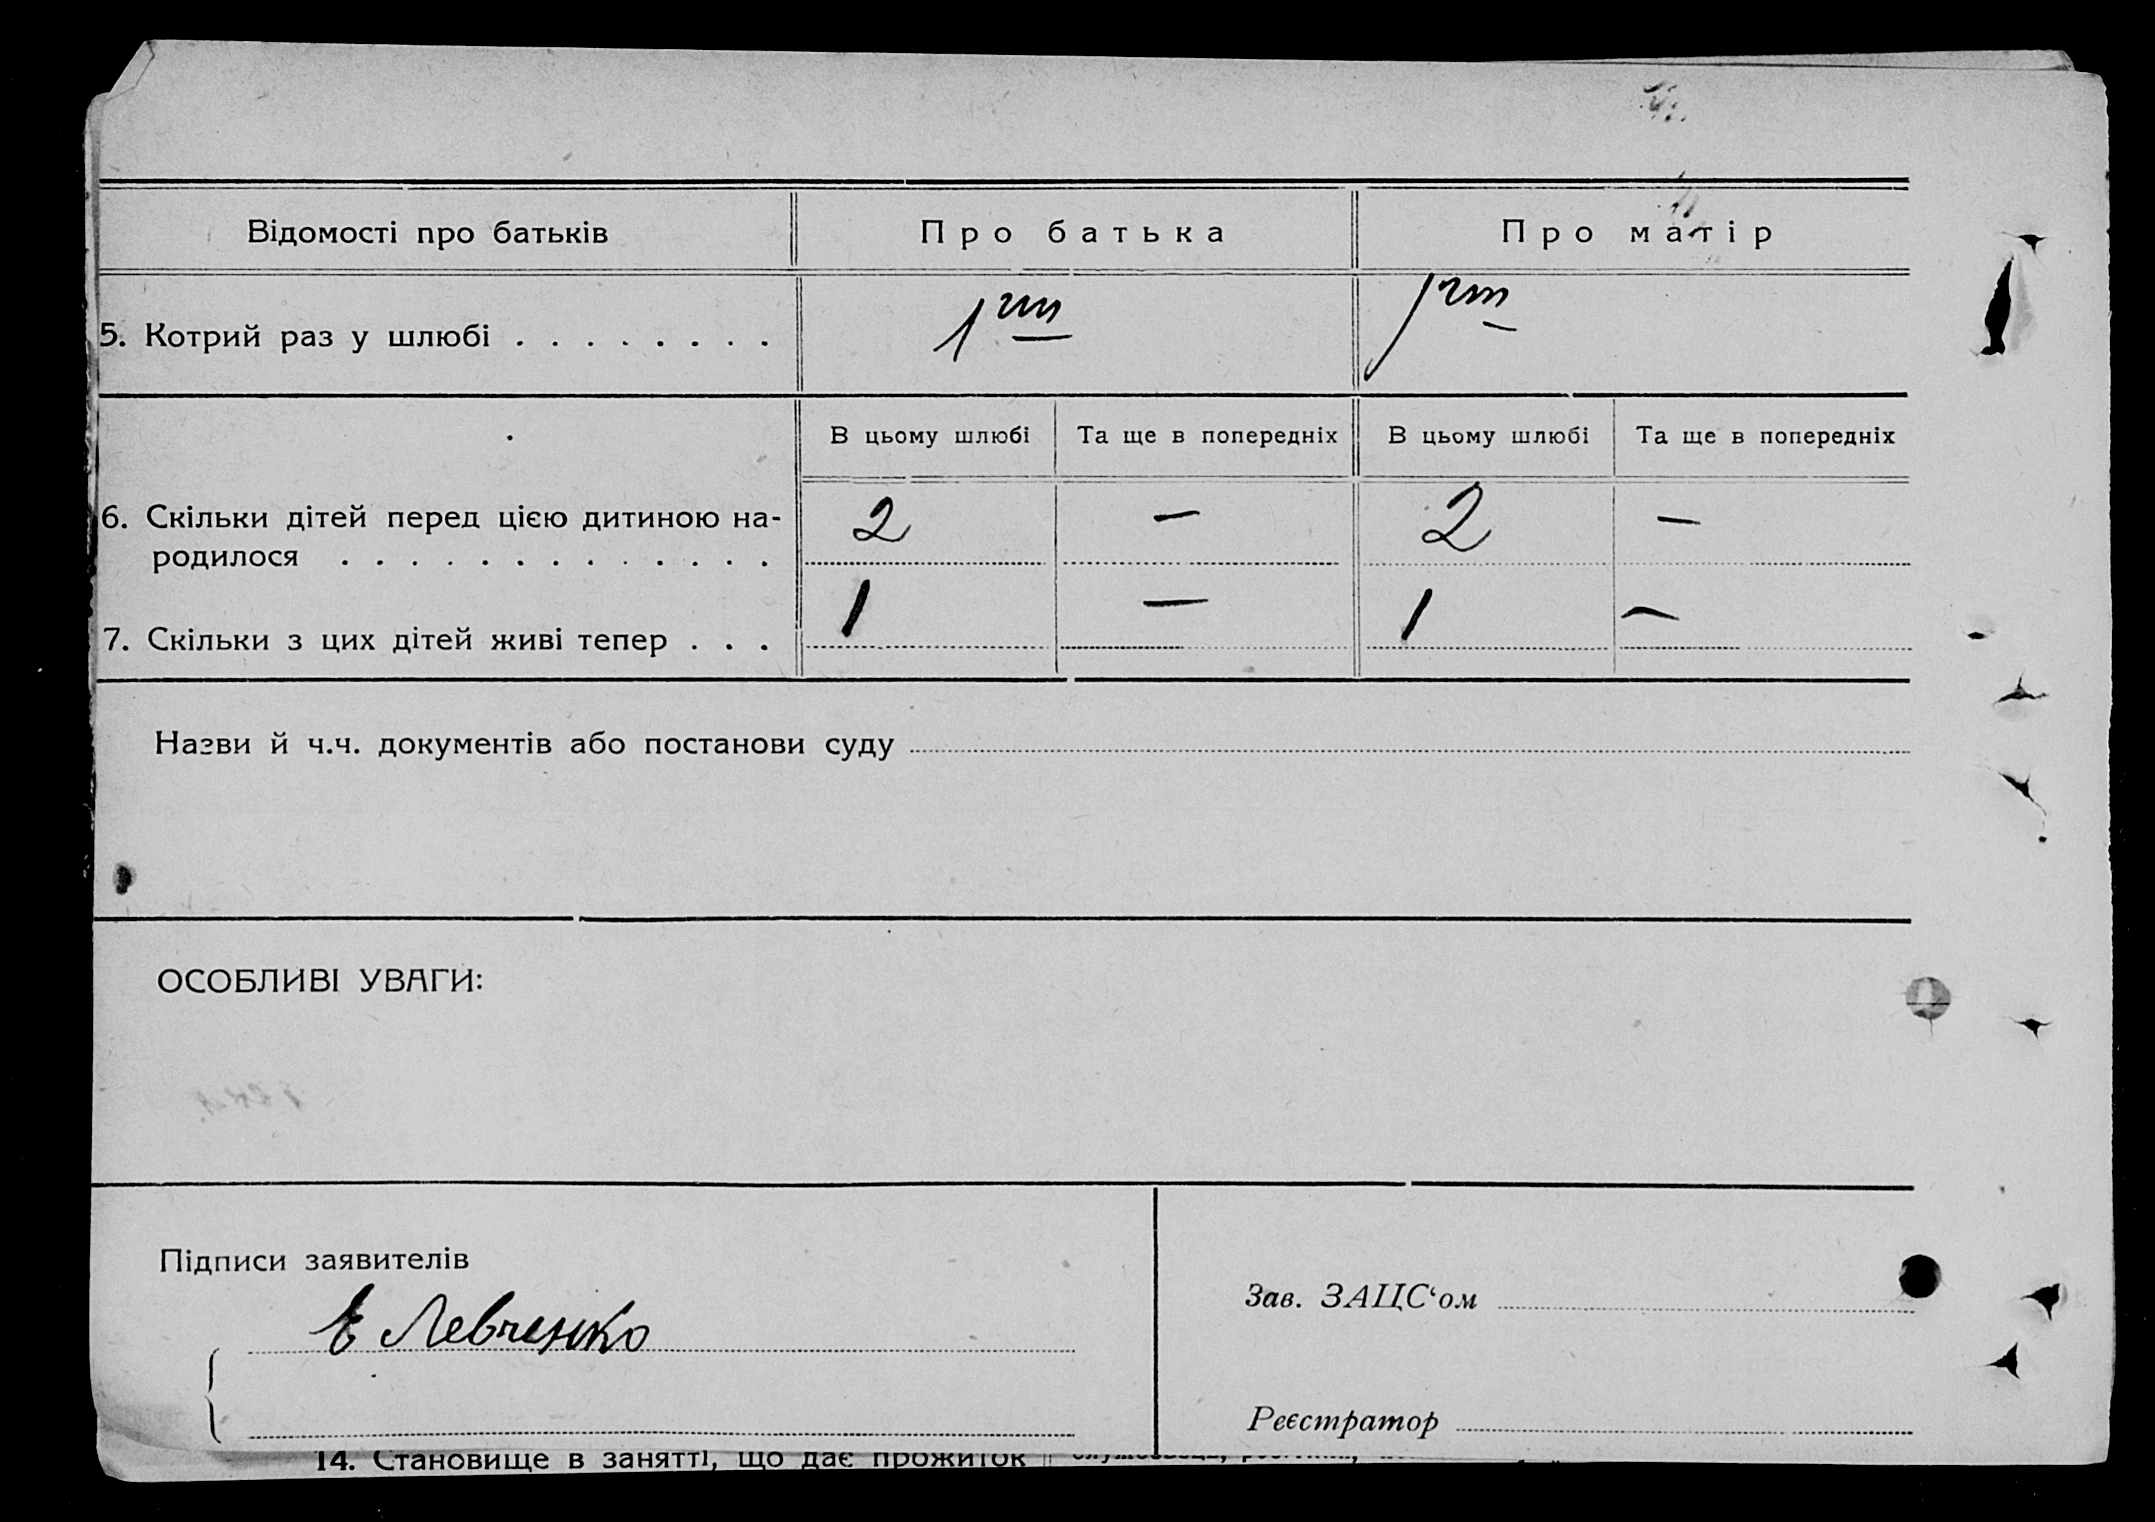 Відомості про батьків Про батька Про матір
5. Котрий раз у шлюбі . . . . . . . . 1 1
В цьому шлюбі Та ще в попередніх В цьому шлюбі Та ще в попередніх
6. Скільки дітей перед цією дитиною на- 2 — 2 —
родилося . . . . . . . . . . . . .
7. Скільки з цих дітей живі тепер . . . 1 — 1 —
Назви й ч.ч. документів або постанови суду
ОСОБЛИВІ УВАГИ:
Підписи заявителів
Е Левченко
Зав. ЗАЦС‘ом
Реєстратор
14. Становище в занятті, що дає прожиток